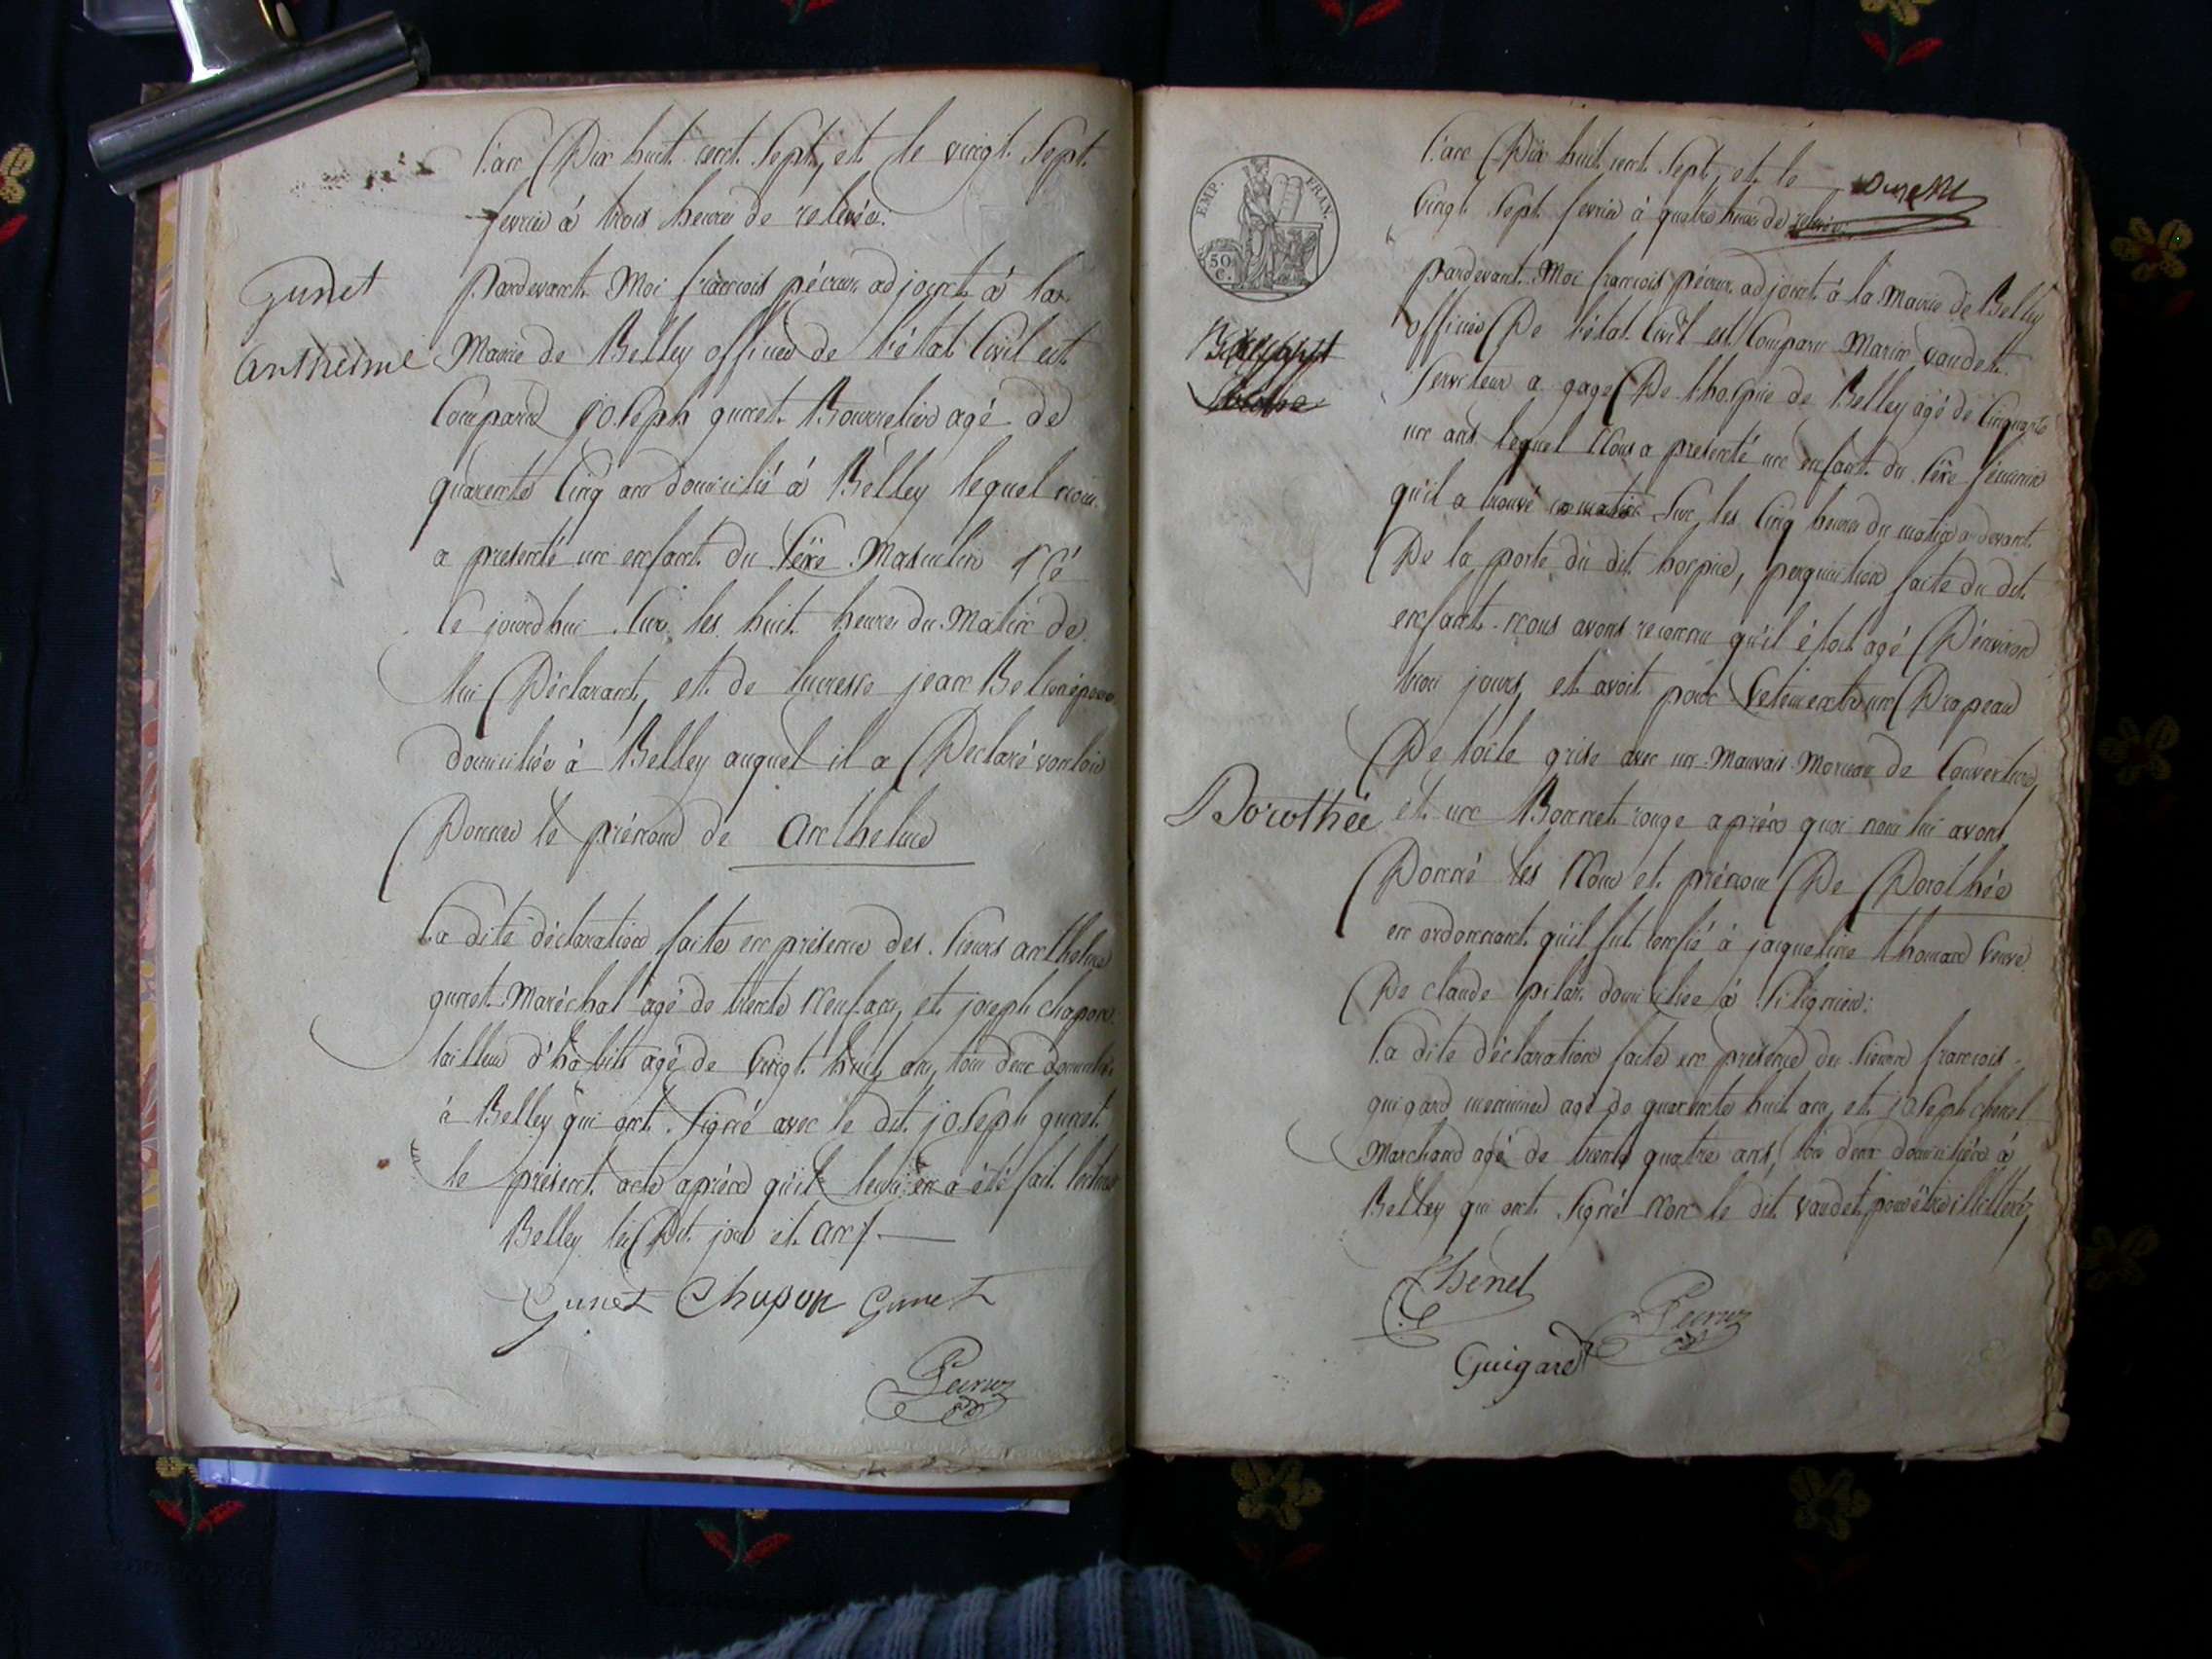 L'an Dix huit cent Sept, et le vingt Sept
fevrier à trois heures de relevée.
Gunet
Anthelme
Pardevant Moi françois pécruz adjoint à la
Mairie de Belley officier de l'état Civil est
Comparu joseph gunet Bourrelier agé de
quarente Cinq ans domicilié à Belley lequel nous
a presenté un enfant du Séxe Masculin Né
Ce jourdhui Sur les huit heures du Matin de
lui Déclarant, et de lucresse jean Belin épouse
domiciliée à Belley auquel il a Declaré vouloir
Donner le prénom de Anthelme
La dite déclaration faite en présence des Sieurs anthelme
gunet Maréchal agé de trente Neuf ans, et joseph chapon
tailleur d'habits agé de Vingt huit ans, tous deux domiciliés
à Belley qui ont Signé avec le dit joseph gunet
le présent acte après qu'il leur en a été fait lecture
Belley les Dit jour et an
Gunet Chapon Gunet
Pecruz
EMP. FRAN.
50 C.
L'an Dix huit cent Sept, et le
Vingt Sept fevrier à quatre heures de relevée
pardevant Moi françois pécruz adjoint à la Mairie de Belley
officier De l'état Civil est Comparu Marin Vaudet
Serviteur a gage De l'hospice de Belley agé de Cinquante
un ans lequel Nous a presenté un enfant du Séxe féminin
qu'il a trouvé Sur les Cinq heures du matin devant
De la porte du dit hospice, perquisition faite du dit
enfant nous avons reconnu qu'il étoit agé D'environ
trois jours, et avoit pour Vetements un Drapeau
De toile grise avec un Mauvais Morceau de Couverture
Dorothée
et un Bonnet rouge après quoi nous lui avons
Donné les Nom et prénom De Dorothée
en ordonnant qu'il fut confié à jacqueline thomand Veuve
De claude pilar domiciliée à Silignieu:
La dite déclaration faite en présence du Sieurs françois
guigard menuisier agé de quarente huit ans, et joseph chenel
Marchand agé de trente quatre ans, tous deux domiciliés à
Belley qui ont Signé Non le dit Vaudet pour être illitteré,
Chenel
Pecruz
Guigard